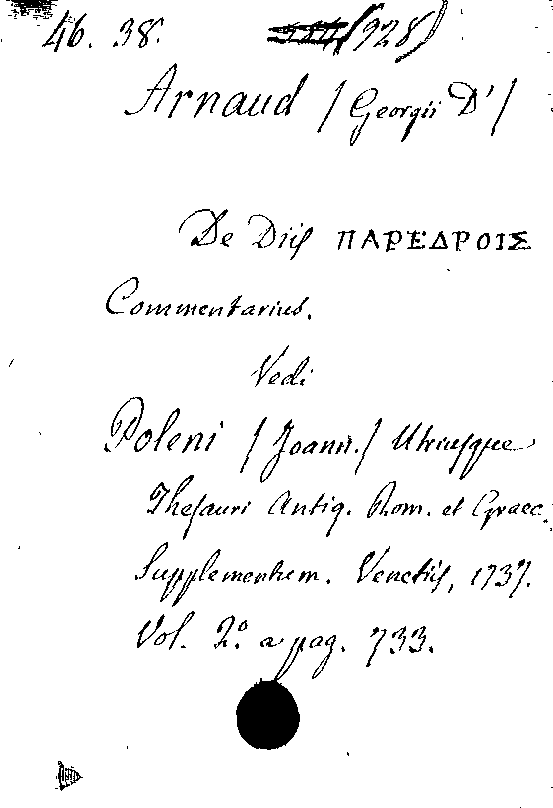 46. 38. (928)
Arnaud / Georgii D' /
De Diis ΠΑΡΕΔΡΟΙΣ
Commentarius.
Vedi
Poleni / Joann. / Utriusque
Thesauri Antiq. Rom. et Graec.
Supplementum. Venetiis, 1737.
Vol. 2.º a pag. 733.